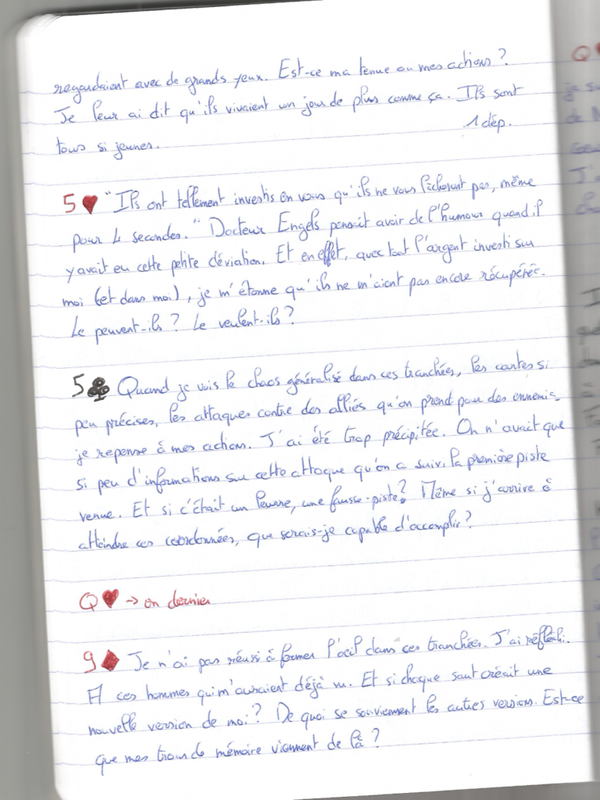 regardaient avec de grands yeux. Est-ce ma tenue ou mes actions ?
Je leur ai dit qu'ils vivaient un jour de plus comme ça. Ils sont
tous si jeunes.
1 dép.
5♥ "Ils ont tellement investis en vous qu'ils ne vous lâcheront pas, même
pour 4 secondes." Docteur Engels pensait avoir de l'humour quand il
y avait eu cette petite déviation. Et en effet, avec tout l'argent investi sur
moi (et dans moi), je m'étonne qu'ils ne m'aient pas encore récupérée.
Le peuvent-ils ? Le veulent-ils ?
5♣ Quand je vois le chaos généralisé dans ces tranchées, les cartes si
peu précises, les attaques contre des alliés qu'on prend pour des ennemis,
je repense à mes actions. J'ai été trop précipitée. On n'avait que
si peu d'informations sur cette attaque qu'on a suivi la première piste
venue. Et si c'était un leurre, une fausse-piste ? Même si j'arrive à
atteindre ces coordonnées, que serais-je capable d'accomplir ?
Q♥ → en dernier
9♦ Je n'ai pas réussi à fermer l'oeil dans ces tranchées. J'ai réfléchi.
A ces hommes qui m'auraient déjà vu. Et si chaque saut créait une
nouvelle version de moi ? De quoi se souviennent les autres versions. Est-ce
que mes trous de mémoire viennent de là ?